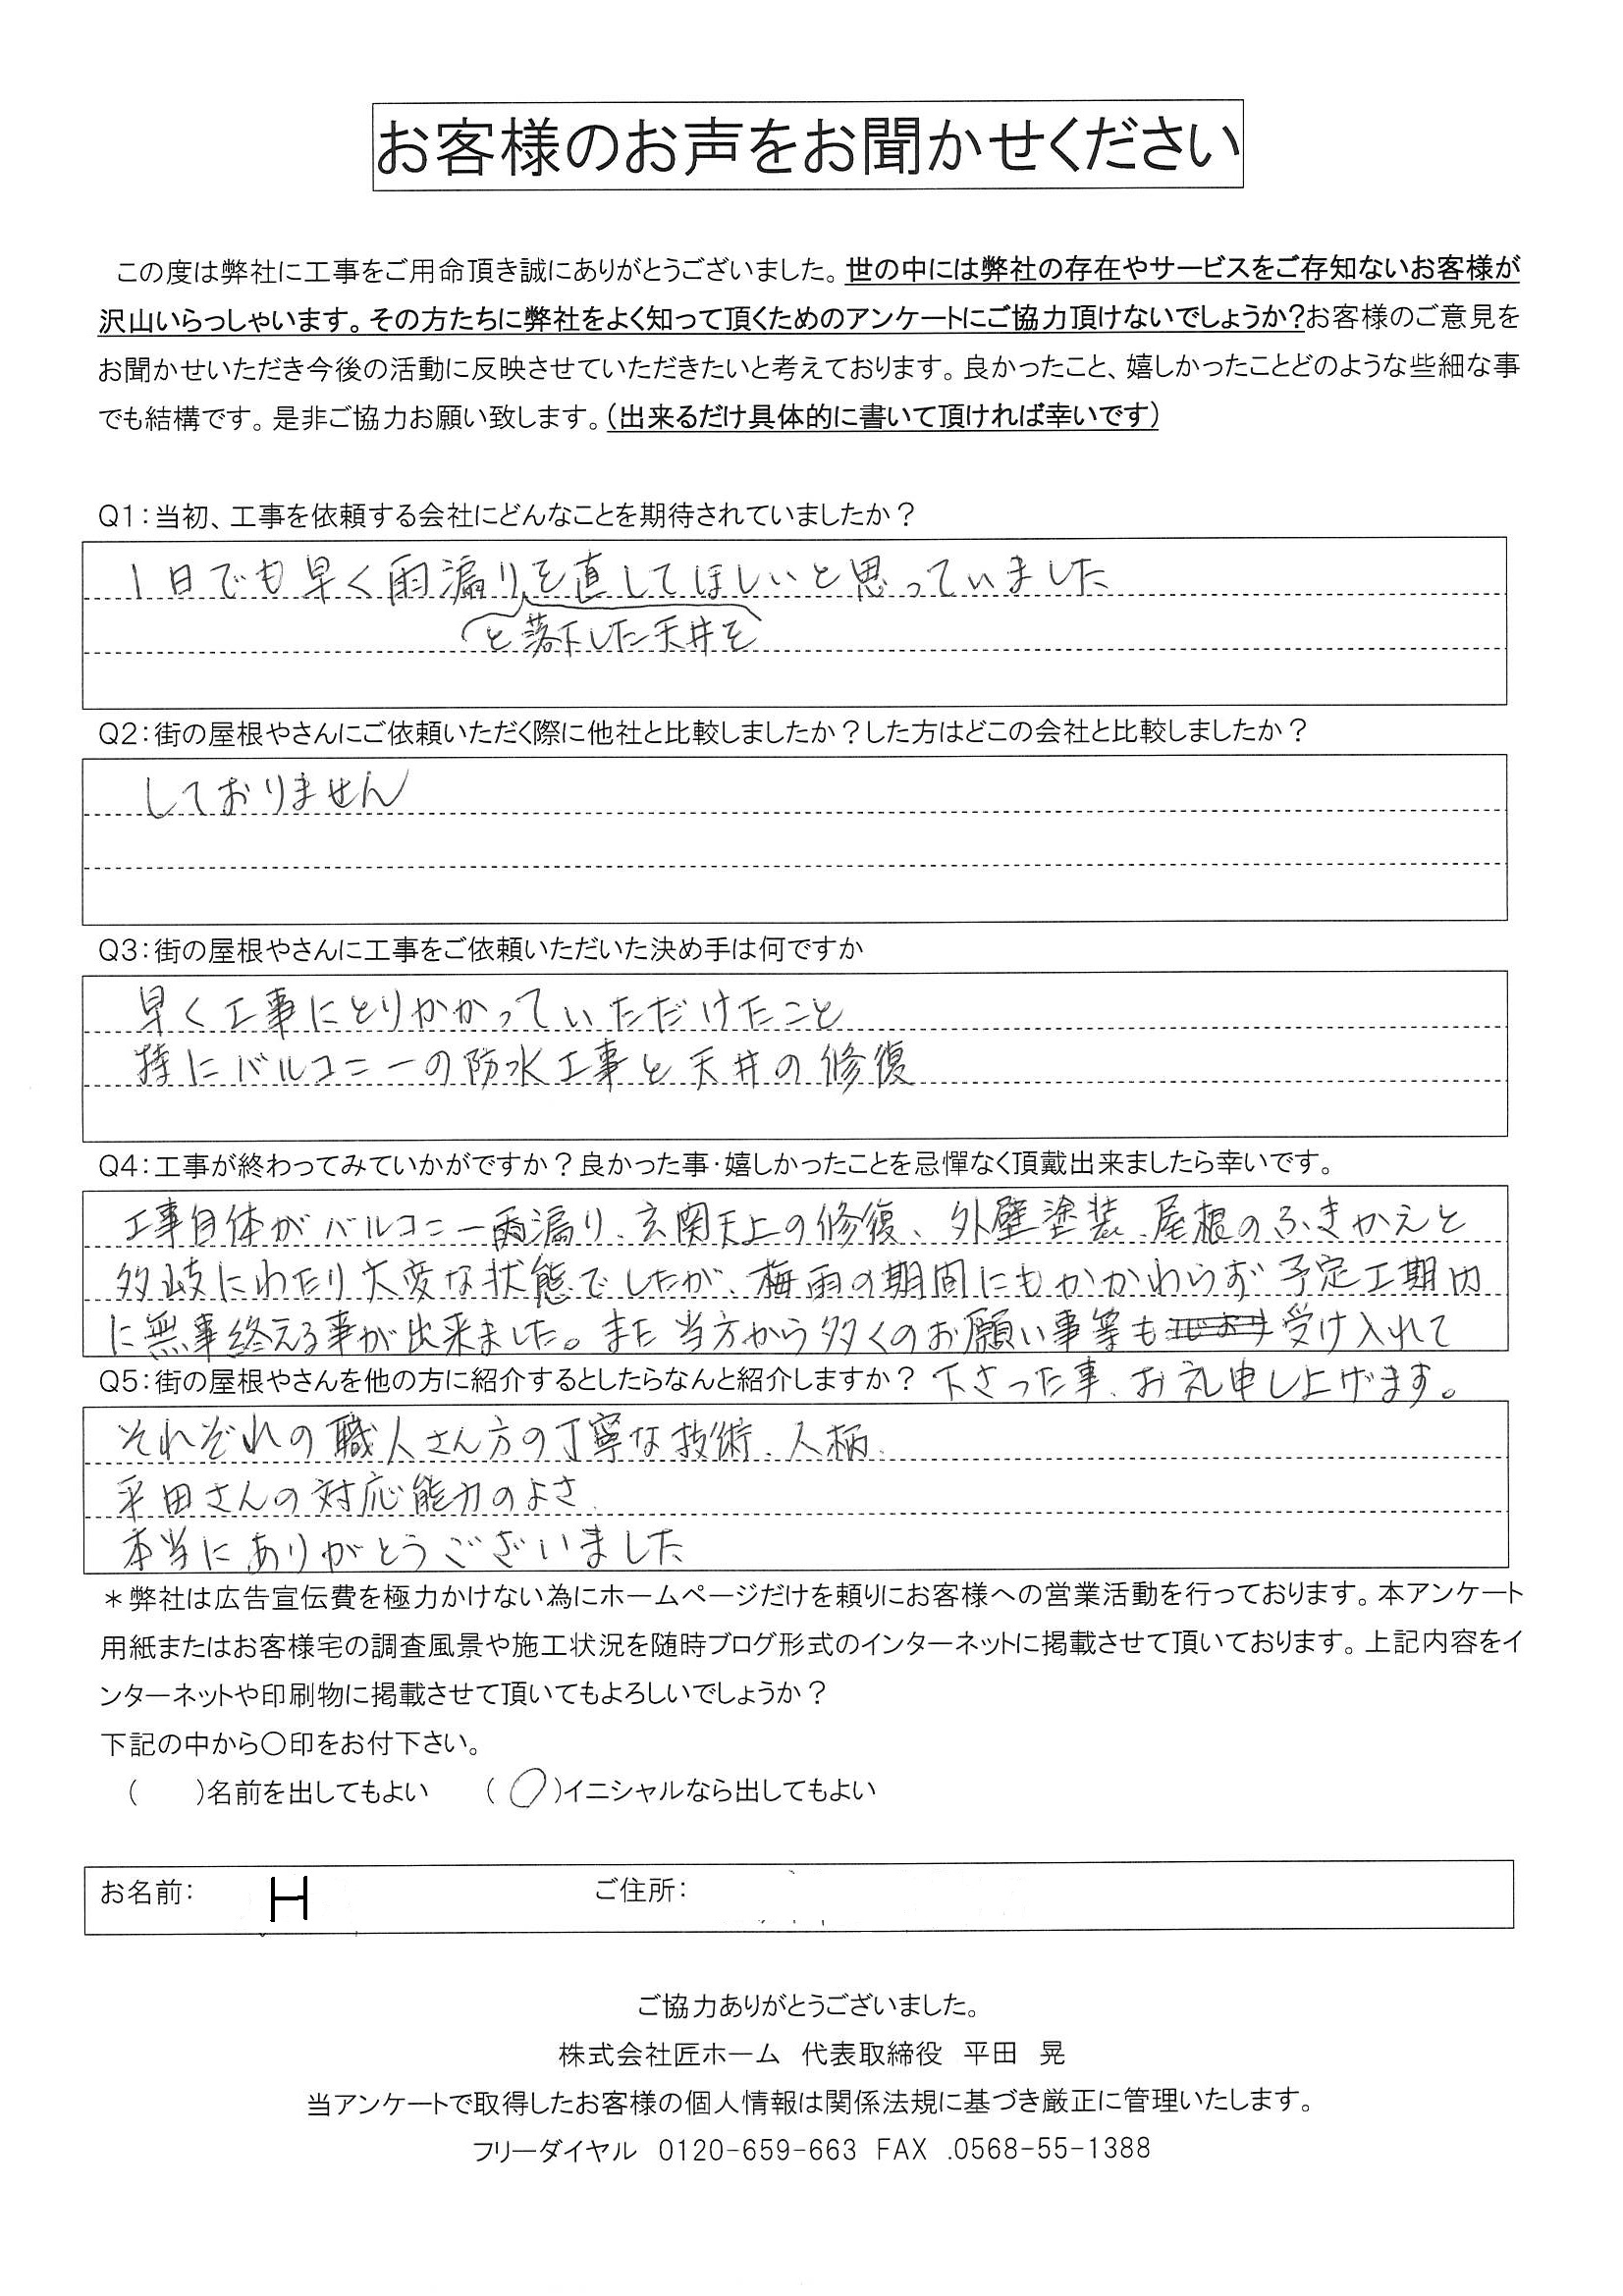 お客様のお声をお聞かせください
この度は弊社に工事をご用命頂き誠にありがとうございました。世の中には弊社の存在やサービスをご存知ないお客様が
沢山いらっしゃいます。その方たちに弊社をよく知って頂くためのアンケートにご協力頂けないでしょうか?お客様のご意見を
お聞かせいただき今後の活動に反映させていただきたいと考えております。良かったこと、嬉しかったことどのような些細な事
でも結構です。是非ご協力お願い致します。(出来るだけ具体的に書いて頂ければ幸いです)
Q1:当初、工事を依頼する会社にどんなことを期待されていましたか?
1日でも早く雨漏りを直してほしいと思っていました
と落下した天井を
Q2:街の屋根やさんにご依頼いただく際に他社と比較しましたか?した方はどこの会社と比較しましたか?
しておりません
Q3:街の屋根やさんに工事をご依頼いただいた決め手は何ですか
早く工事にとりかかっていただけたこと
特にバルコニーの防水工事と天井の修復
Q4:工事が終わってみていかがですか?良かった事・嬉しかったことを忌憚なく頂戴出来ましたら幸いです。
工事自体がバルコニー雨漏り、玄関天上の修復、外壁塗装、屋根のふきかえと
多岐にわたり大変な状態でしたが、梅雨の期間にもかかわらず予定工期内
に無事終える事が出来ました。また当方から多くのお願い事等も受け入れて
Q5:街の屋根やさんを他の方に紹介するとしたらなんと紹介しますか? 下さった事、お礼申し上げます。
それぞれの職人さん方の丁寧な技術、人柄、
平田さんの対応能力のよさ、
本当にありがとうございました
*弊社は広告宣伝費を極力かけない為にホームページだけを頼りにお客様への営業活動を行っております。本アンケート
用紙またはお客様宅の調査風景や施工状況を随時ブログ形式のインターネットに掲載させて頂いております。上記内容をイ
ンターネットや印刷物に掲載させて頂いてもよろしいでしょうか?
下記の中から〇印をお付下さい。
( )名前を出してもよい (〇)イニシャルなら出してもよい
お名前: H ご住所:
ご協力ありがとうございました。
株式会社匠ホーム 代表取締役 平田 晃
当アンケートで取得したお客様の個人情報は関係法規に基づき厳正に管理いたします。
フリーダイヤル 0120-659-663 FAX .0568-55-1388